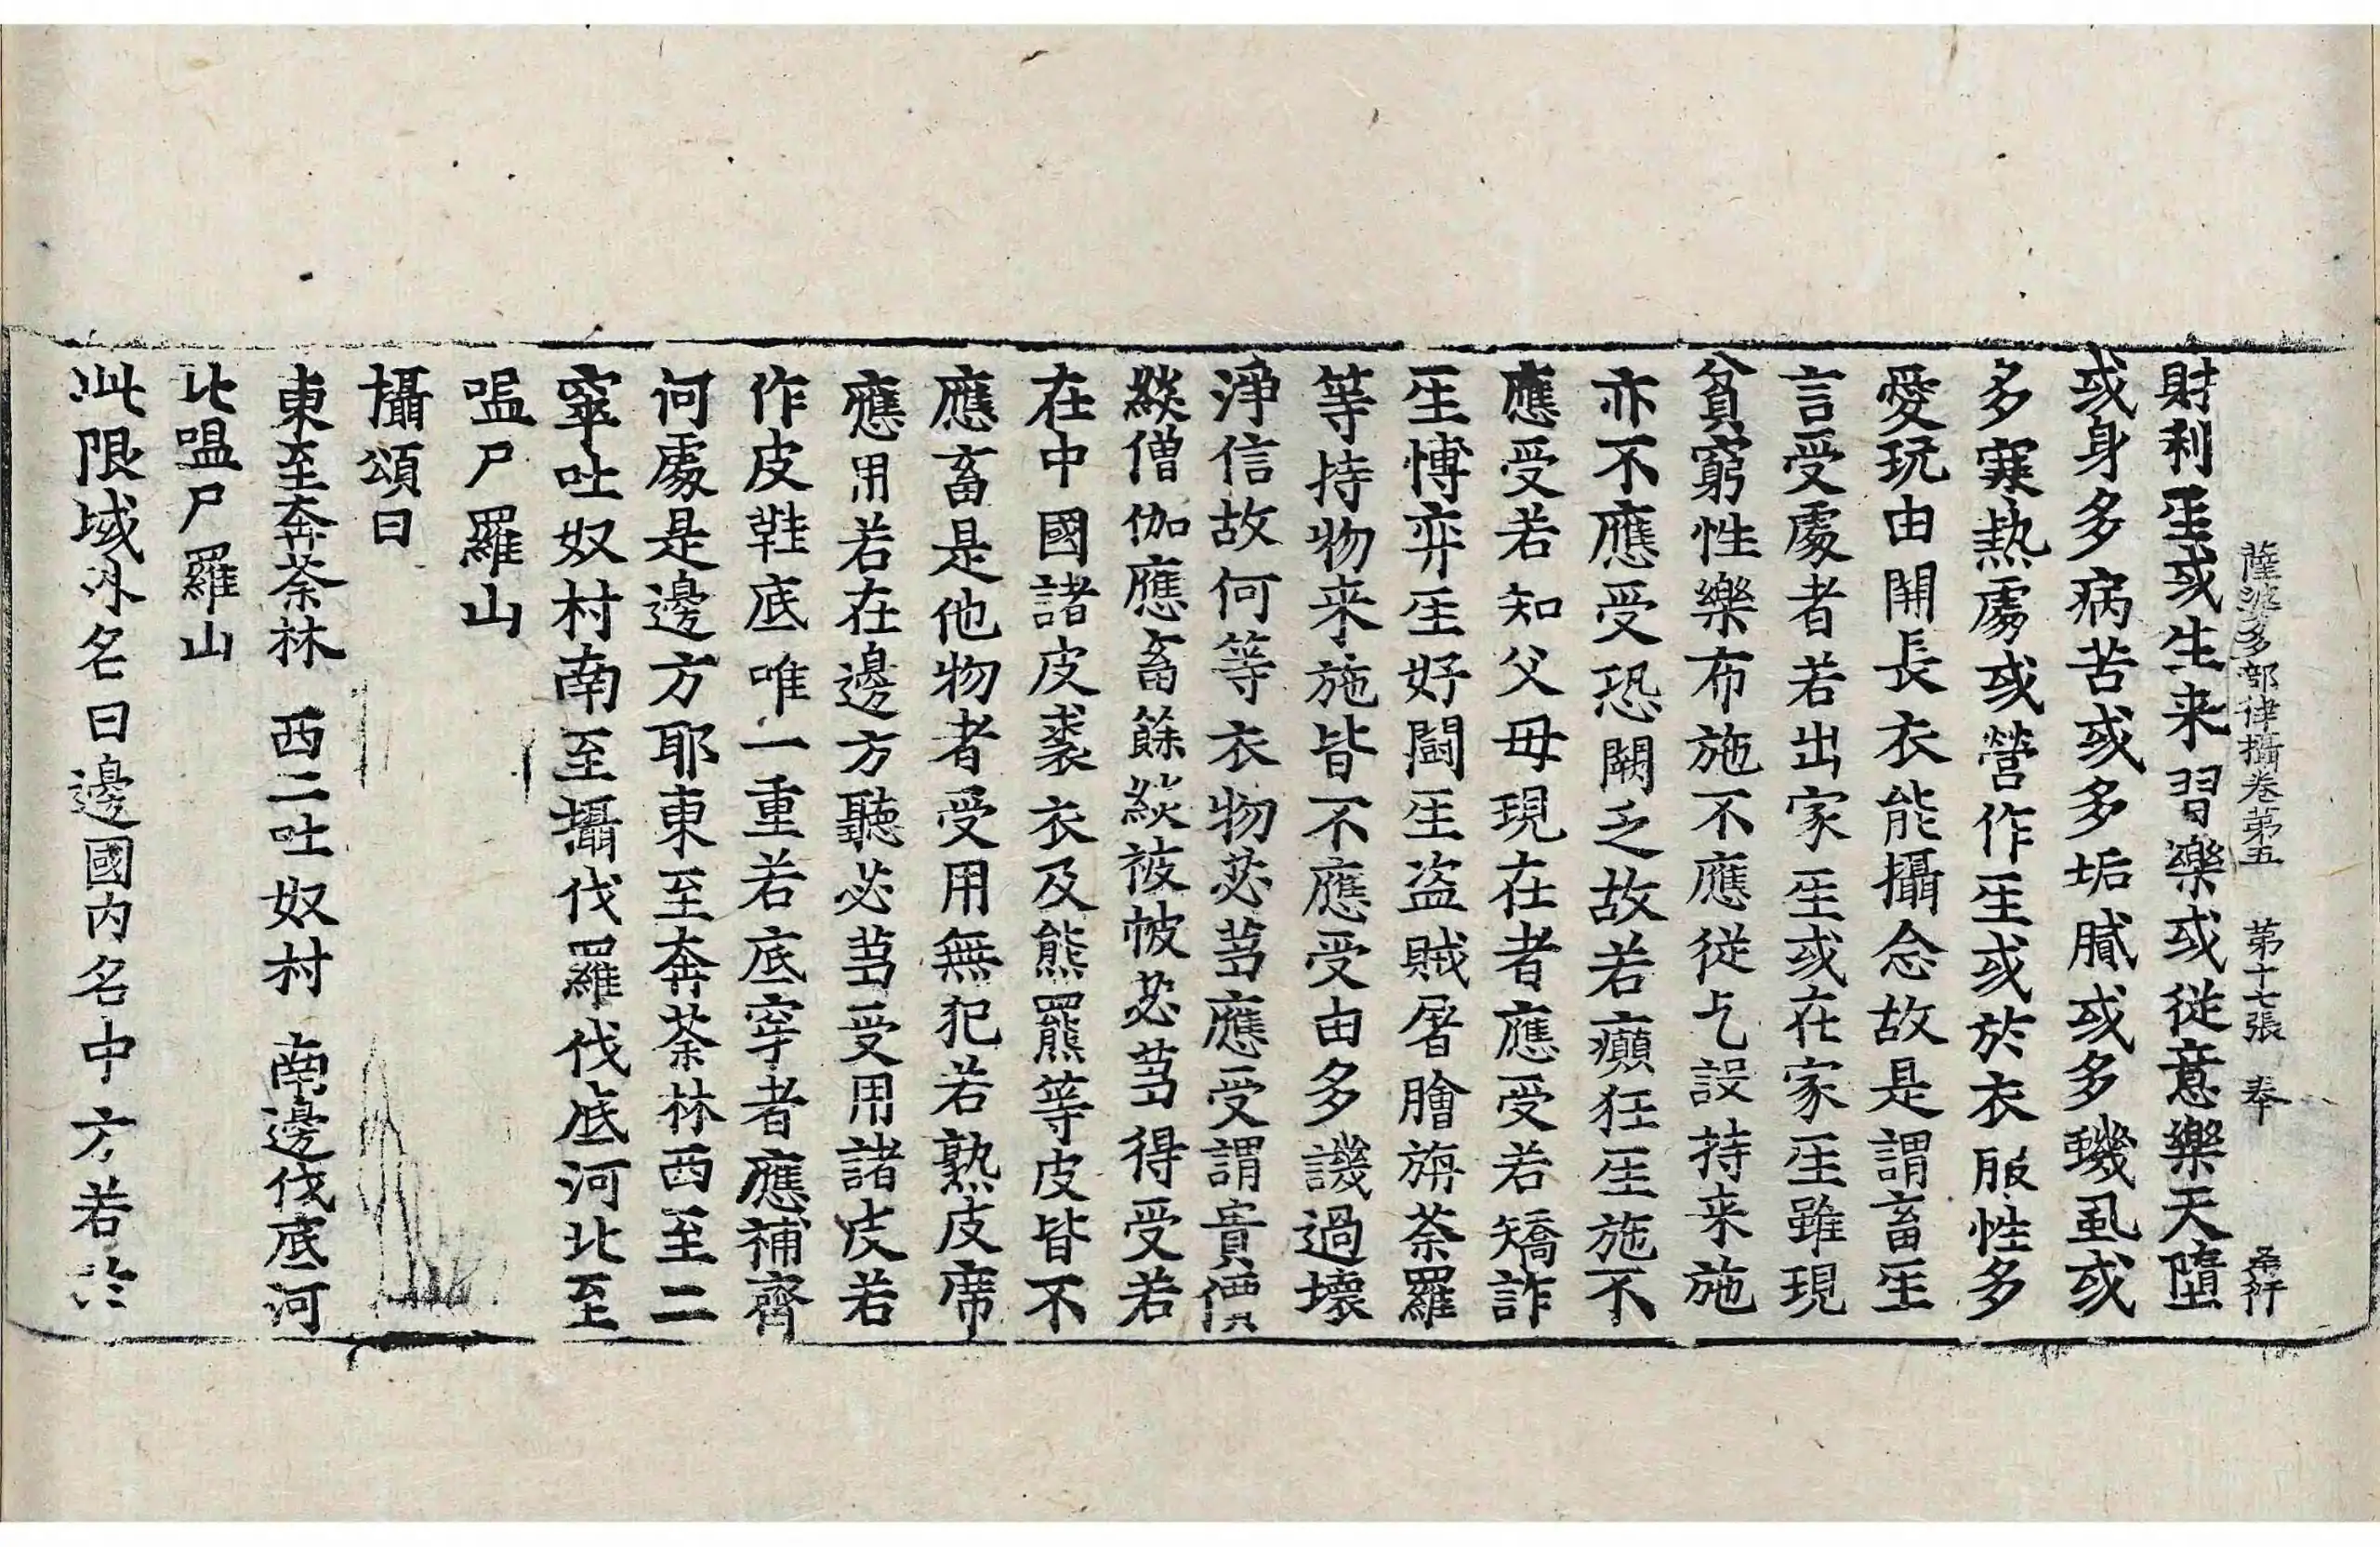 薩婆多部律攝卷苐五 苐十七張 奉
財利𤯔或生来習樂或從意樂天墮
或身多病苦或多垢膩或多蟣虱或
多寒熱處或營作𤯔或於衣服性多
愛玩由開長衣能攝念故是謂畜𤯔
言受處者若出家𤯔或在家𤯔雖現
貧窮性樂布施不應從乞設持来施
亦不應受恐闕乏故若癲狂𤯔施不
應受若知父母現在者應受若矯詐
𤯔博弈𤯔好鬪𤯔盜賊屠膾旃荼羅
等持物来施皆不應受由多譏過壞
淨信故何等衣物苾蒭應受謂貴價
緂僧伽應畜餘緂被帔苾蒭得受若
在中國諸皮裘衣及熊羆等皮皆不
應畜是他物者受用無犯若熟皮席
應用若在邊方聽苾蒭受用諸皮若
作皮鞋底唯一重若底穿者應補齊
何處是邊方耶東至奔荼林西至二
窣吐奴村南至攝伐羅伐底河北至
嗢尸羅山
攝頌曰
東至奔荼林 西二吐奴村 南邊伐底河
北嗢尸羅山
此限域外名曰邊國內名中方若於